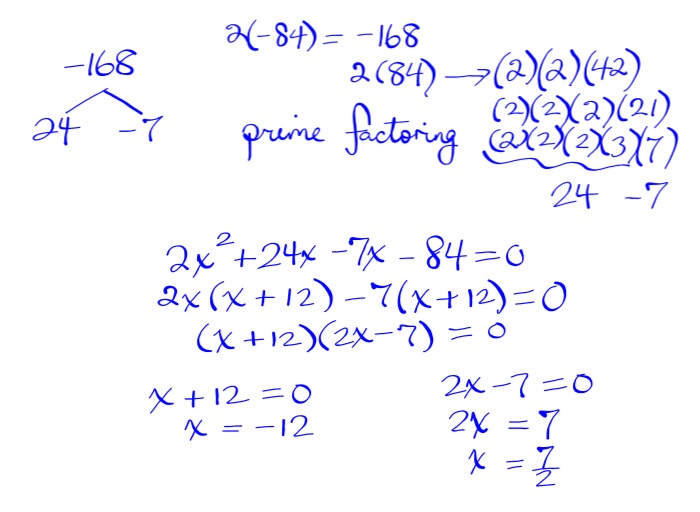 2(-84) = -168
-168
2(84) → (2)(2)(42)
(2)(2)(2)(21)
24 -7
prime factoring (2)(2)(2)(3)(7)
24 -7
2x² + 24x - 7x - 84 = 0
2x(x + 12) - 7(x + 12) = 0
(x + 12)(2x - 7) = 0
x + 12 = 0
x = -12
2x - 7 = 0
2x = 7
x = 7/2